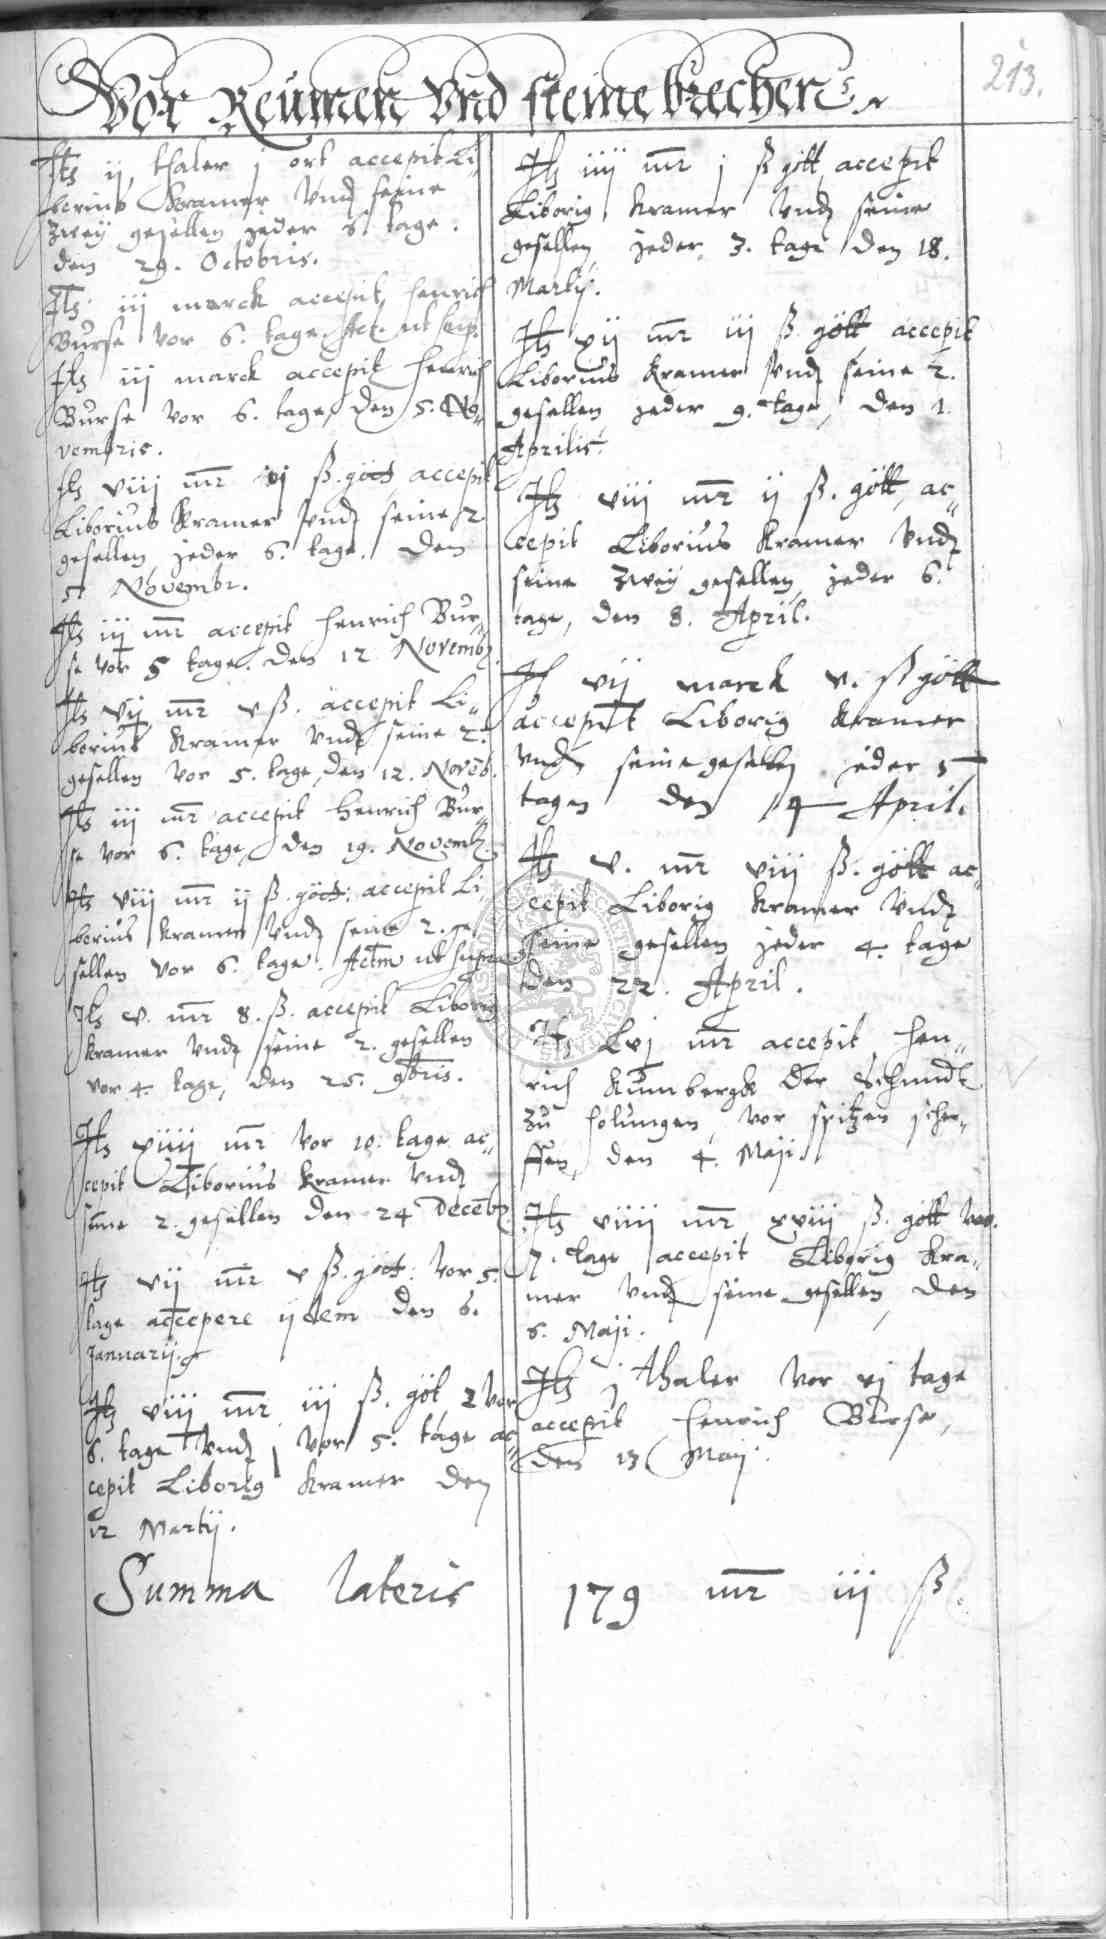 213.
Vor Reumen Vnd steinebrechen
Its ij thaler j ort accepit Li-
borius Kramer Vnd seine
zweÿ gesellen jeder 6 tage.
den 29. Octobris.
Its iij marck accepit henrich
Burse vor 6. tage. Act. ut sup.
Its iij marck accepit henrich
Burse vor 6. tage, den 5. No-
vembris.
Its viij mr ij ß. gött. accepit
Liborius Kramer Vnd seine 2
gesellen jeder 6. tage. Den
5 Novembr.
Its iij mr accepit henrich Bur-
se vor 5 tage. den 12 Novemb.
Its vij mr v ß. accepit Li-
borius Kramer Vnd seine 2.
gesellen vor 5. tage, den 12. Novēb.
Its iij mr accepit Henrich Bur-
se vor 6. tage, den 19. Novemb.
Its viij mr ij ß. gött: accepit Li-
borius Kramer Vnd seine 2. ge-
sellen vor 6. tage. Actm ut supra
Its v. mr 8. ß. accepit Liborig
Kramer Vnd seine 2. gesellen
vor 4. tage, den 26. 9bris.
Its xiiij mr Vor 10. tage ac-
cepit Liborius Kramer Vnd
seine 2. gesellen den 24 Decēb.
Its vij mr v ß. gött: Vor 5.
tage accepere ijdem den 6.
Januarij.
Its viij mr iij ß. göt 2 Vor
6. tage Vnd 1 Vor 5. tage ac-
cepit Liborig Kramer den
12 Martij.
Its iiij mr j ß gött accepit
Liborig Kramer Vnd seine
gesellen, jeder 3. tage den 18.
Martij.
Its xij mr iij ß. gött accepit
Liborius Kramer Vnd seine 2.
gesellen jeder 9. tage, den 1.
Aprilis.
Its viij mr ij ß. gött, ac-
cepit Liborius Kramer Vnd
seine zweÿ gesellen, jeder 6.
tage, den 8. April.
It vij marck v. ß gött
accepit Liborig Kramer
Vnd seine gesellen jeder 5
tagen den 14 April.
Its v. mr viij ß. gött ac-
cepit Liborig Kramer Vnd
seine gesellen jeder 4. tage
den 22. April.
Its Lvj mr accepit hen-
rich Kumbergk Der Schmidt
zu holungen, vor spitzen scher-
ffen, den 4. Maji.
Its viiij mr xviij ß. gött Vor.
7. tage accepit Liborig Kra-
mer Vnd seine gesellen, den
6. Maji.
Its j thaler vor vj tage
accepit henrich Burse,
den 13 Maij.
Summa lateris 179 mr iij ß.